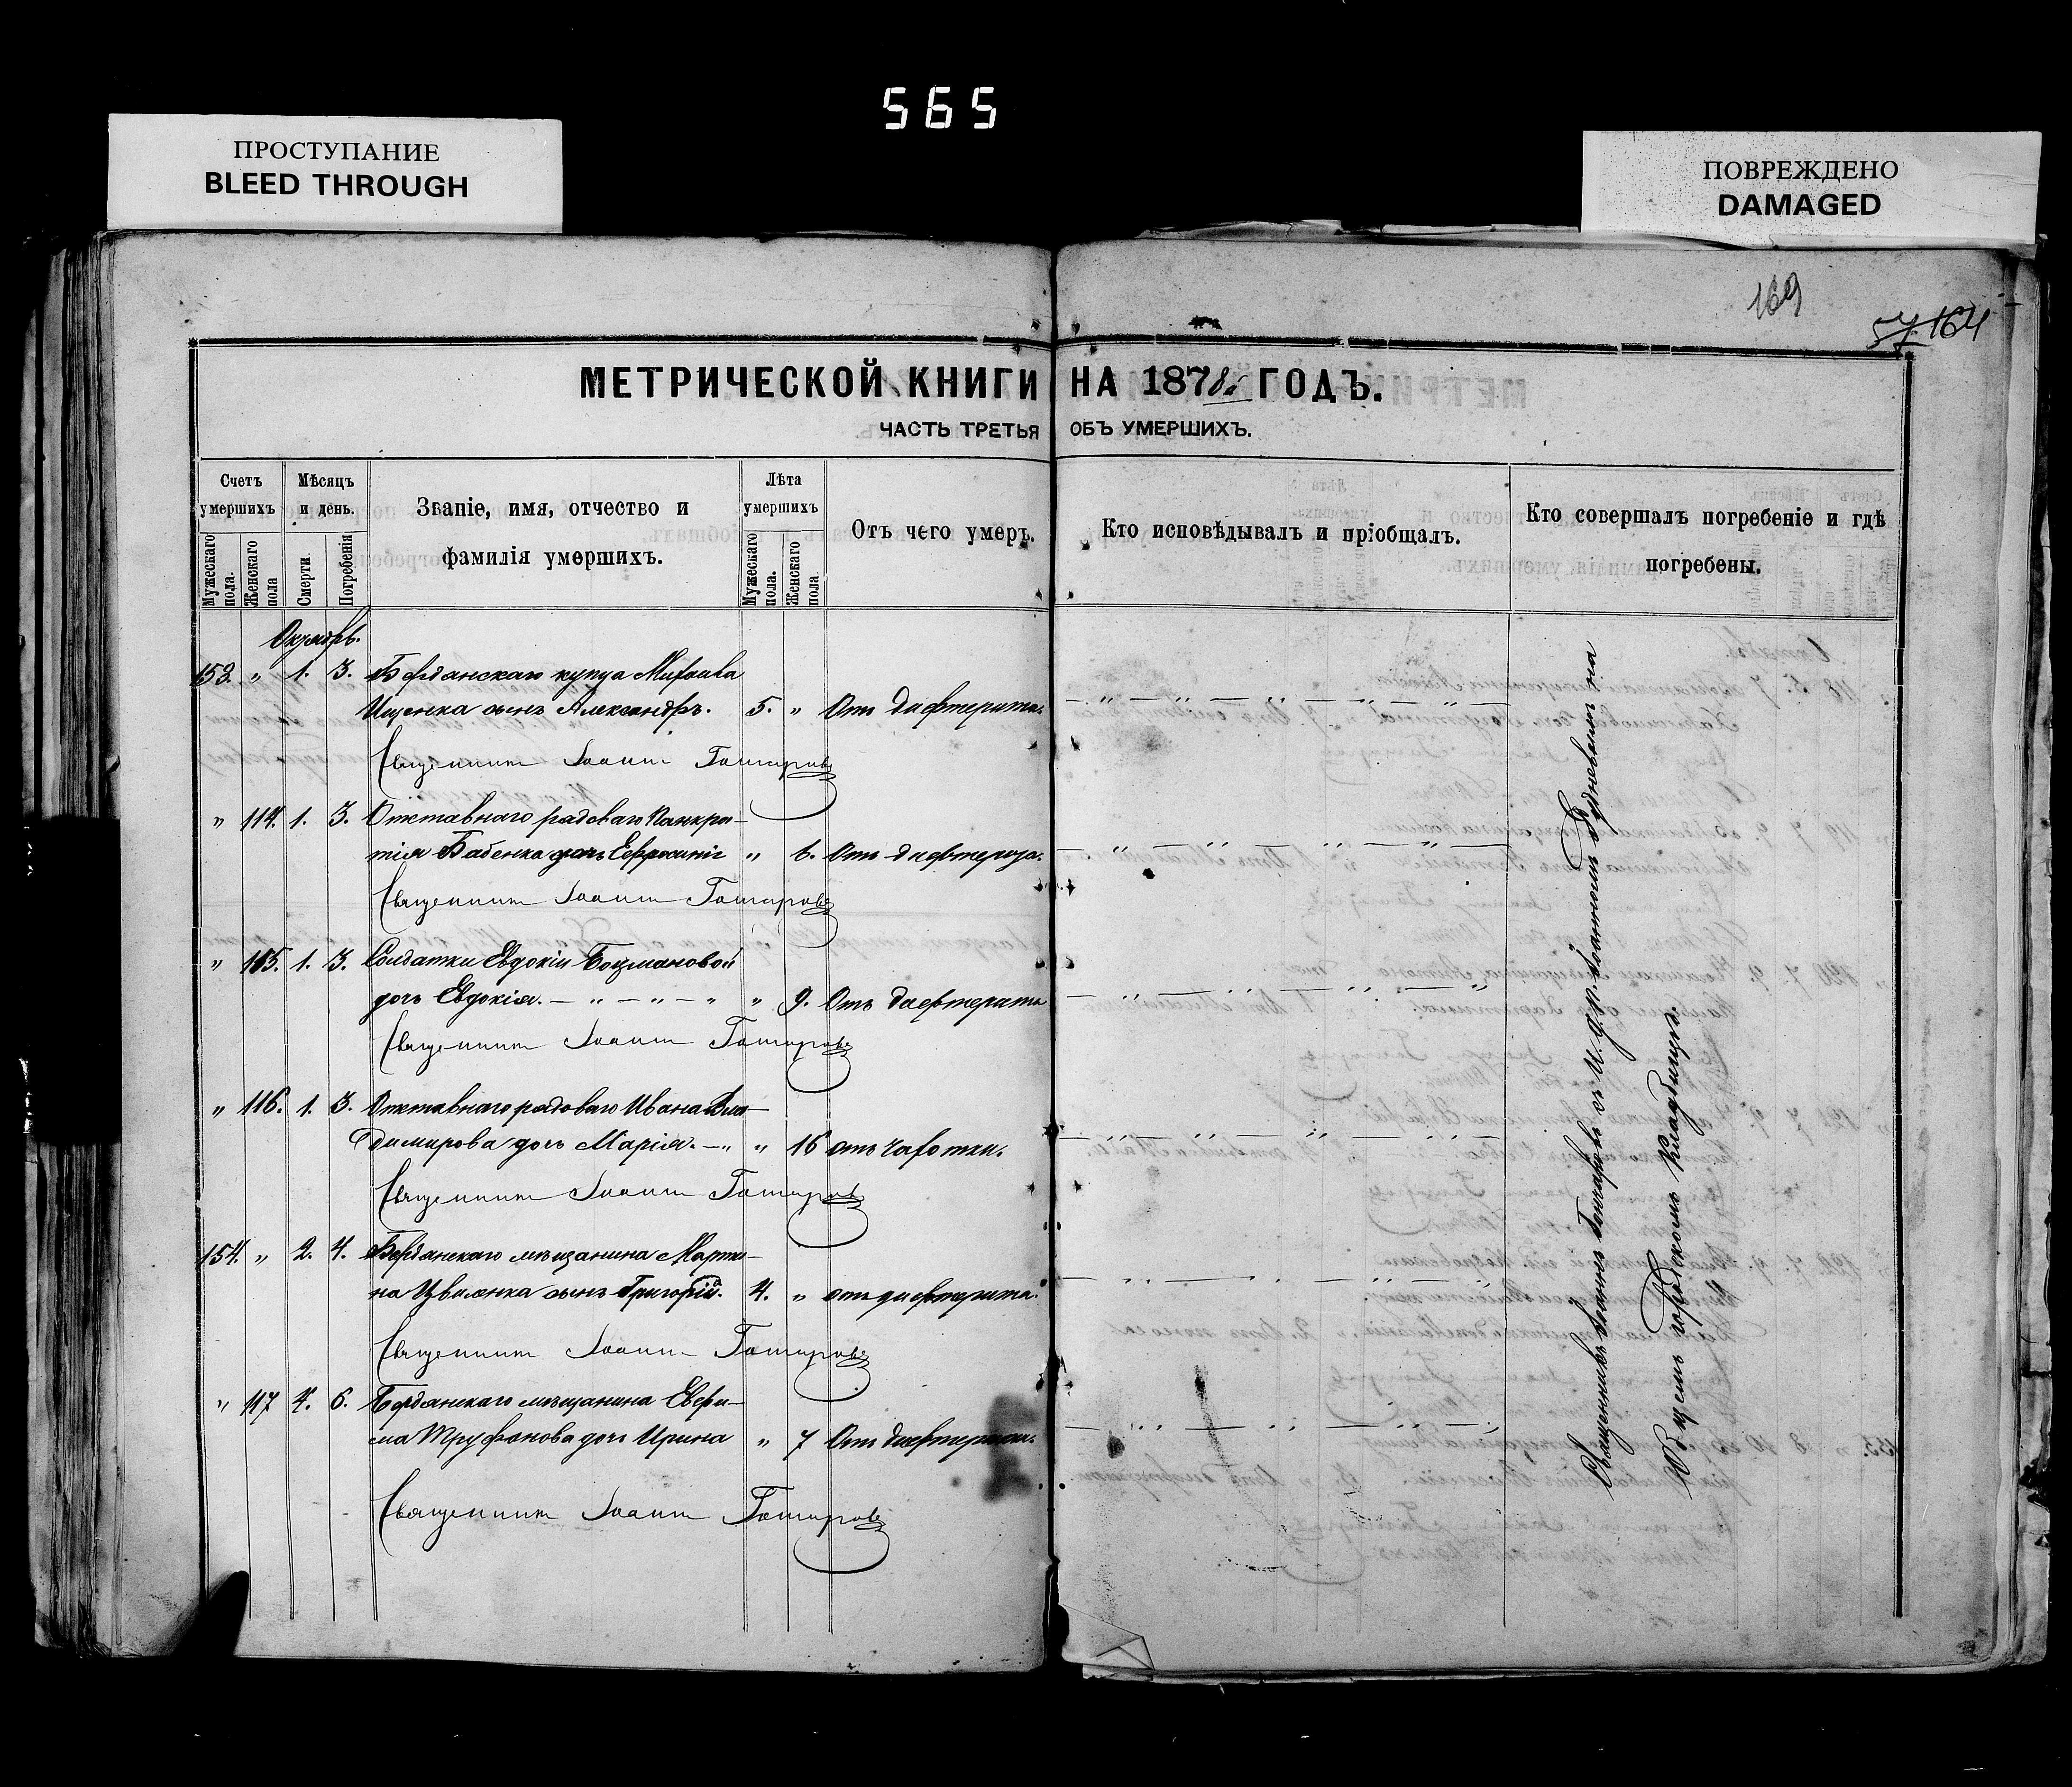 565
ПРОСТУПАНИЕ
BLEED THROUGH
ПОВРЕЖДЕНО
DAMAGED
169
57 164
МЕТРИЧЕСКОЙ КНИГИ НА 1878й ГОДЪ.
ЧАСТЬ ТРЕТЬЯ ОБЪ УМЕРШИХЪ.
Счетъ умершихъ
Мужескаго пола.
Женскаго пола
Мѣсяцъ и день.
Смерти.
Погребенія
Званіе, имя, отчество и
фамилія умершихъ.
Лѣта умершихъ
Мужескаго пола.
Женскаго пола
Отъ чего умеръ.
Кто исповѣдывалъ и пріобщалъ.
Кто совершалъ погребеніе и гдѣ
погребены.
Октябрь.
153. " 1. 3. Бердянскаго купца Михаила
Ищенка сынъ Александръ. 5. " Отъ дифтерита.
Священникъ Іоаннъ Гончаровъ
" 114. 1. 3. Отставнаго рядоваго Панкра-
тія Бабенка дочь Ефросинія " 6. Отъ дифтерита.
Священникъ Іоаннъ Гончаровъ
" 115. 1. 3. Солдатки Евдокіи Боцмановой
дочь Евдокія. — " — " — " " 9. Отъ дифтерита
Священникъ Іоаннъ Гончаровъ
" 116. 1. 3. Отставнаго рядоваго Ивана Вла-
димирова дочь Марія. — " " 16 отъ чахотки.
Священникъ Іоаннъ Гончаровъ
154. " 2. 4. Бердянскаго мѣщанина Марти-
на Цвиленка сынъ Григорій. 4. " отъ дифтерита.
Священникъ Іоаннъ Гончаровъ
" 117 4. 6. Бердянскаго мѣщанина Евфи-
ма Труфанова дочь Ирина " 7 Отъ дифтерита.
Священникъ Іоаннъ Гончаровъ
Священникъ Іоаннъ Гончаровъ съ И. д. п. Іоанномъ Рудневымъ на
Общемъ городскомъ кладбищѣ.